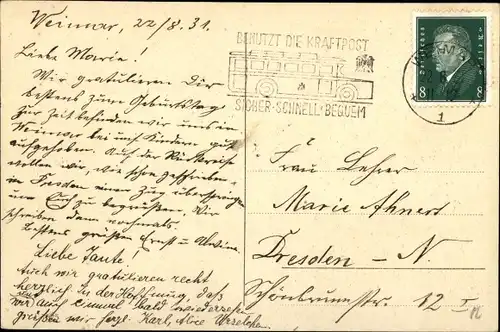 Weimar, 22/8. 31.
Liebe Marie!
Wir gratulieren Dir
bestens zum Geburtstag
zur Zeit befinden wir uns in
Weimar bei mit Kindern gut
aufgehoben. Auf der Rückreise
wollen wir, wie schon geschrieben
in Dresden einen Zug überspringen
um Euch zu begrüssen. Wir
schreiben dann nochmals.
Bestens grüßen Ernst u.
Liebe Tante!
Auch wir gratulieren recht
herzlich. In der Hoffnung, daß
wir auch einmal bald wiedersehen
grüßen wir herzl. Karl, Alice
BENUTZT DIE KRAFTPOST
SICHER·SCHNELL·BEQUEM
Deutsches Reich
8 8
1
Frau Lehrer
Marie Ahnert
Dresden - N
Schönbrunnstr. 12 I